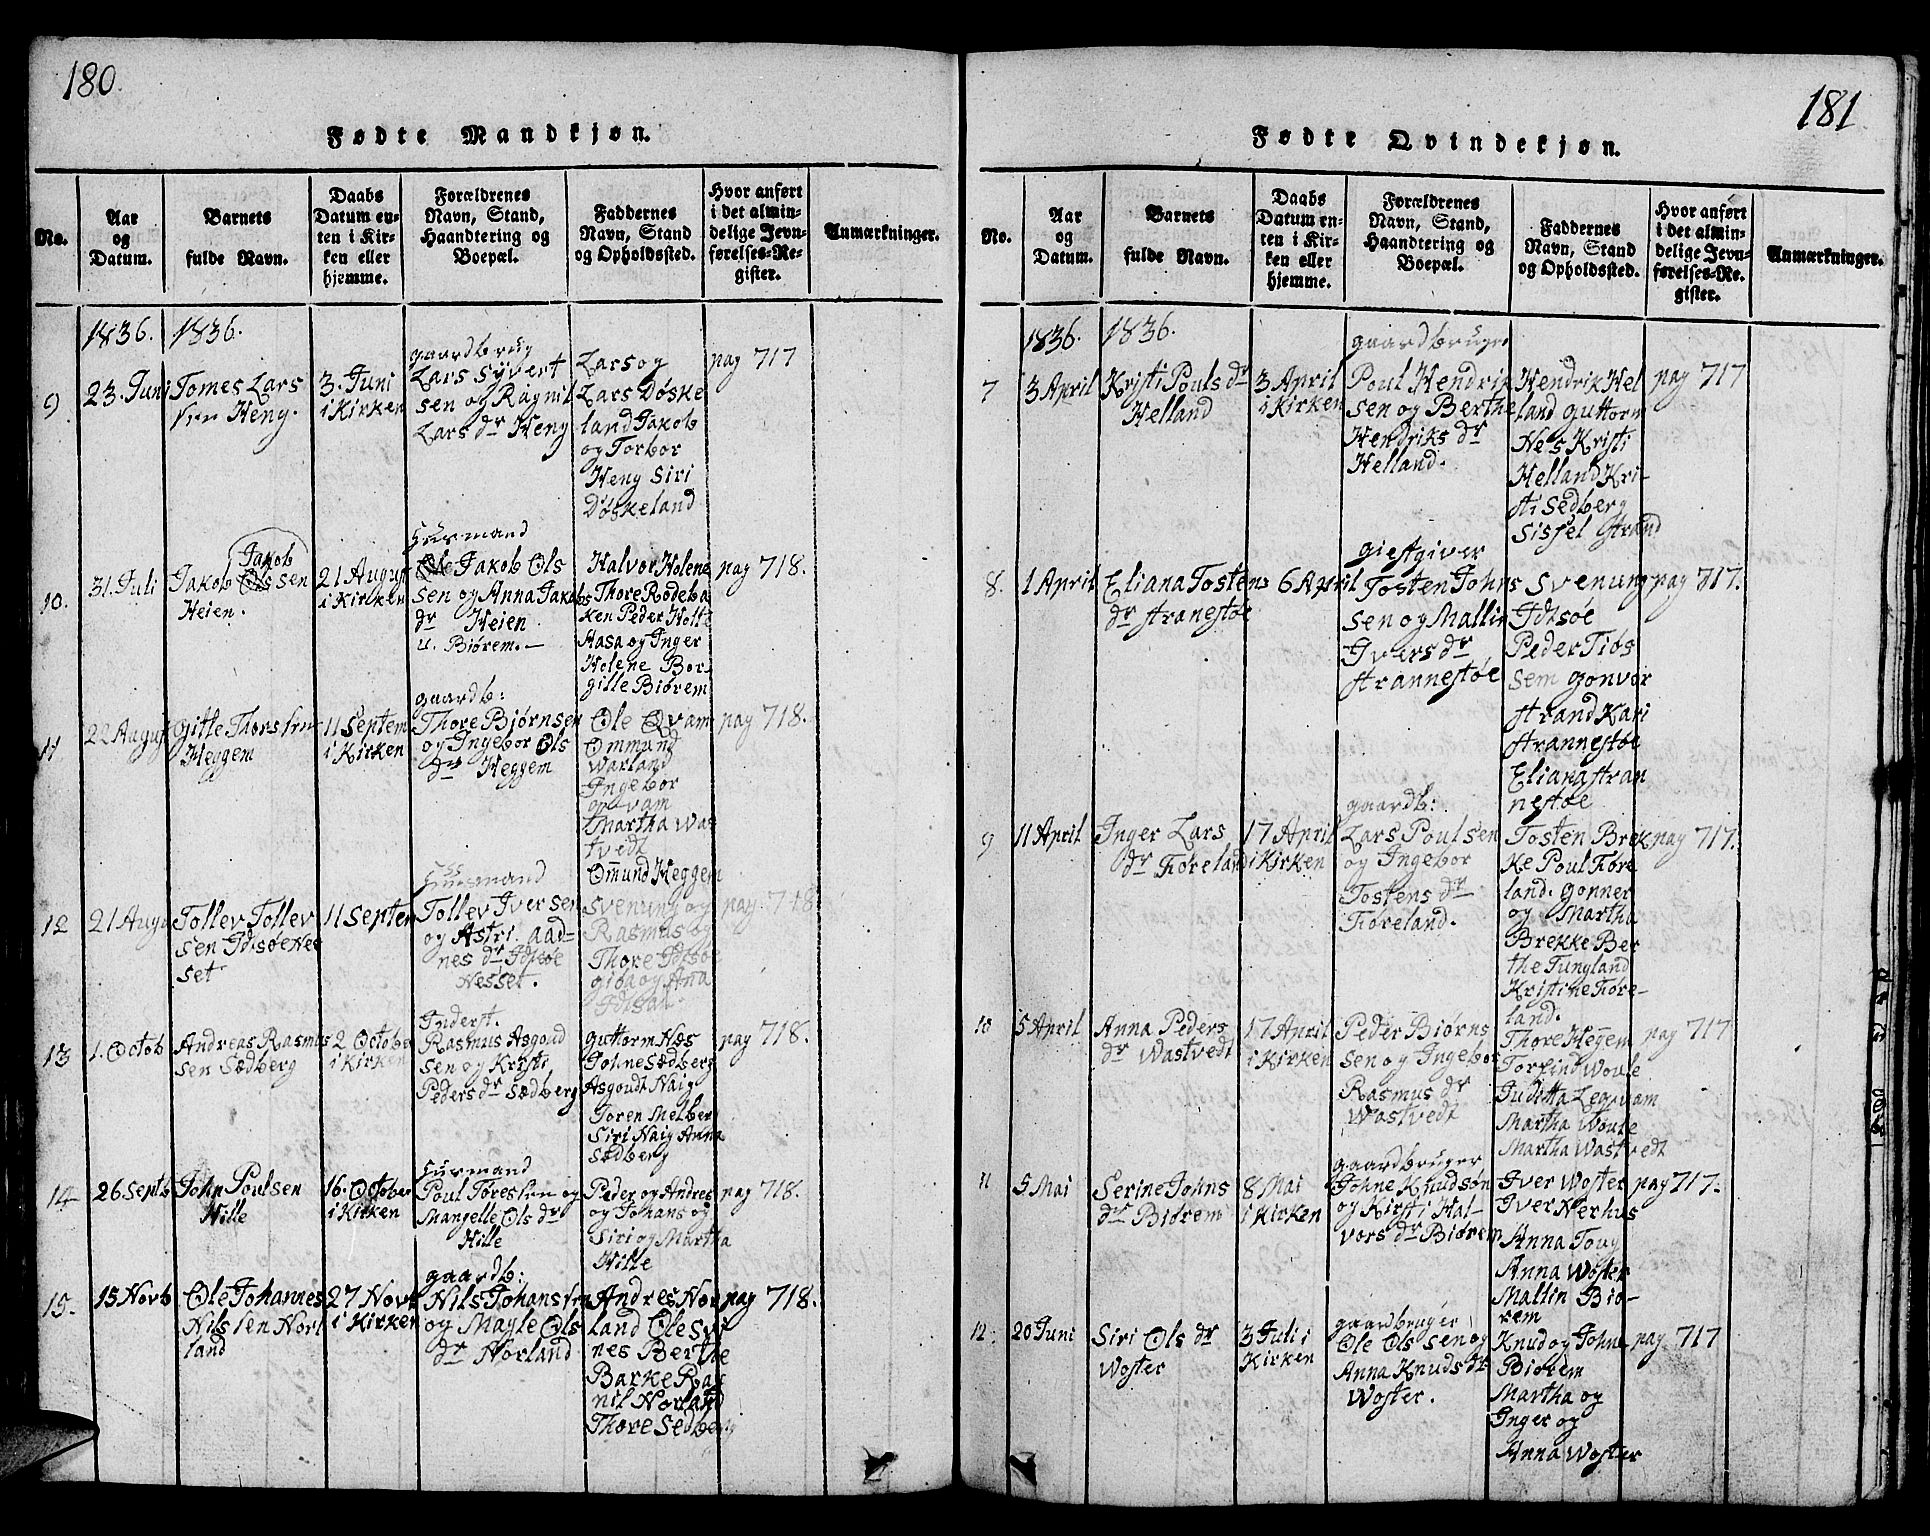 180.
Fødte Mandkjøn.
No.
Aar
og
Datum.
Barnets
fulde Navn.
Daabs
Datum en-
ten i Kir-
ken eller
hjemme.
Forældrenes
Navn, Stand,
Haandtering og
Boepæl.
Faddernes
Navn, Stand
og Opholdssted.
Hvor anført
i det almin-
delige Jevn-
førelses-Re-
gister.
Anmærkninger.
1836.
1836.
9
23. Juni
Tomes Lars
sen Heng.
3. Juni
i Kirken
gaardbrug
Lars Syvert
sen og Ragnil
Lars dr Heng
Lars og
Lars Døske
land Jakob
og Torbor
Heng Siri
Døskeland
pag 717
10.
31. Juli
Jakob
Jakob Olssen
Heien.
21 August
i Kirken
Huusmand
Ole Jakob Ols
sen og Anna Jakobs
dr Heien
u. Biørem.
Halvor Holene
Thore Rødeba
ken Peder Holte
Aasa og Inger
Holene Bor-
gille Biørem
pag 718.
11
22 August
Gitle Thorssen
Heggem
11 Septem
i Kirken
gaardb:
Thore Bjørnsen
og Ingebor Ols
dr Heggem
Ole Qvam
Ommund
Warland
Ingebor
qvam
Martha Was
tvedt
Omund Heggem
pag 718.
12
21 Augu
Tollev Tollev
sen Idsøe Nes
set
11 Septem
Huusmand
Tollev Iversen
og Astri. Aad-
nes dr Idsøe
Nesset.
Svenung og
Rasmus og
Thore Idsøe
giøa og Ana
Idsal.
pag. 718
13
1. Octob
Andreas Rasmus
sen Sædberg
2 October
i Kirken
Inderst.
Rasmus Asgoud
sen og Kristi
Peders dr Sædberg
Guttorm Næs
Johne Sædberg
Asgoudt Naig
Joren Melberg
Siri Naig Anna
Sædberg
pag 718.
14
26. Septb
John Poulsen
Hille
16. October
i Kirken
Huusmand
Poul Toressen og
Mangelle Ols dr
Hille
Peder og Andres
og Johans og
Siri og Martha
Hille
pag 718.
15.
15 Novb
Ole Johannes
Nilssen Norl
land
27 Novb
i Kirken
gaardb:
Nils Johanssen
og Magle Ols
dr Norland
Andres Nor
land Ole Svi
nes Berthe
Barke Rag
nil Norland
Thore Sedberg
pag 718.
181
Fødte Qvindekjøn.
No.
Aar
og
Datum.
Barnets
fulde Navn.
Daabs
Datum en-
ten i Kir-
ken eller
hjemme.
Forældrenes
Navn, Stand,
Haandtering og
Boepæl.
Faddernes
Navn, Stand
og Opholdssted.
Hvor anført
i det almin-
delige Jevn-
førelses-Re-
gister.
Anmærkninger.
1836.
1836.
7
3 April
Kristi Pouls dr
Helland
3 April
i Kirken
gaardbruger
Poul Hendrik
sen og Berthe
Hendriks dr
Helland.
Hendrik Hel
land Guttorm
Nes Kristi
Helland Kri-
sti Sedberg
Sissel Strand
pag 717
8.
1 April
Eliana Tostens
dr Stranestøe
6 April
Giestgiver
Tosten Johns
sen og Mallin
Ivers dr
Strannestøe
Svenung
Idtsøe
Peder Tiøs
sem Gonvor
Strand Kari
Strannestøe
Eliana Stran
nestøe
pag 717.
9
11 April
Inger Lars
dr Føreland
17 April
i Kirken
gaardb:
Lars Poulsen
og Ingebor
Tostens dr
Føreland.
Tosten Brek
ke Poul Føre
land. Gonner
og Martha
Brekke Ber
the Tungland
Kristine Føre-
land.
pag 717.
10
5 April
Anna Peders
dr Wastvedt
17 April
i Kirken
Peder Biørns
sen og Ingebor
Rasmus dr
Wastvedt
Thore Hegem
Torfind Woule
Judetta Legevam
Martha Woule
Martha Wastvedt
pag 717
11
5 Mai
Serine Johns
dr Biørem
8 Mai
i Kirken
gaardbruger
Johne Knudsøn
og Kirsti Hal-
vors dr Biørem
Iver Woster
Iver Nerhus
Anna Toug
Anna Woster
Mallin Biø-
rem
pag 717.
12.
20 Juni
Siri Ols dr
Woster
3 Juli i
Kirken
gaardbruger
Ole Olssen og
Anna Knuds dr
Woster.
Knud og Johne
Biørem
Martha og
Inger og
Anna Woster
pag. 717